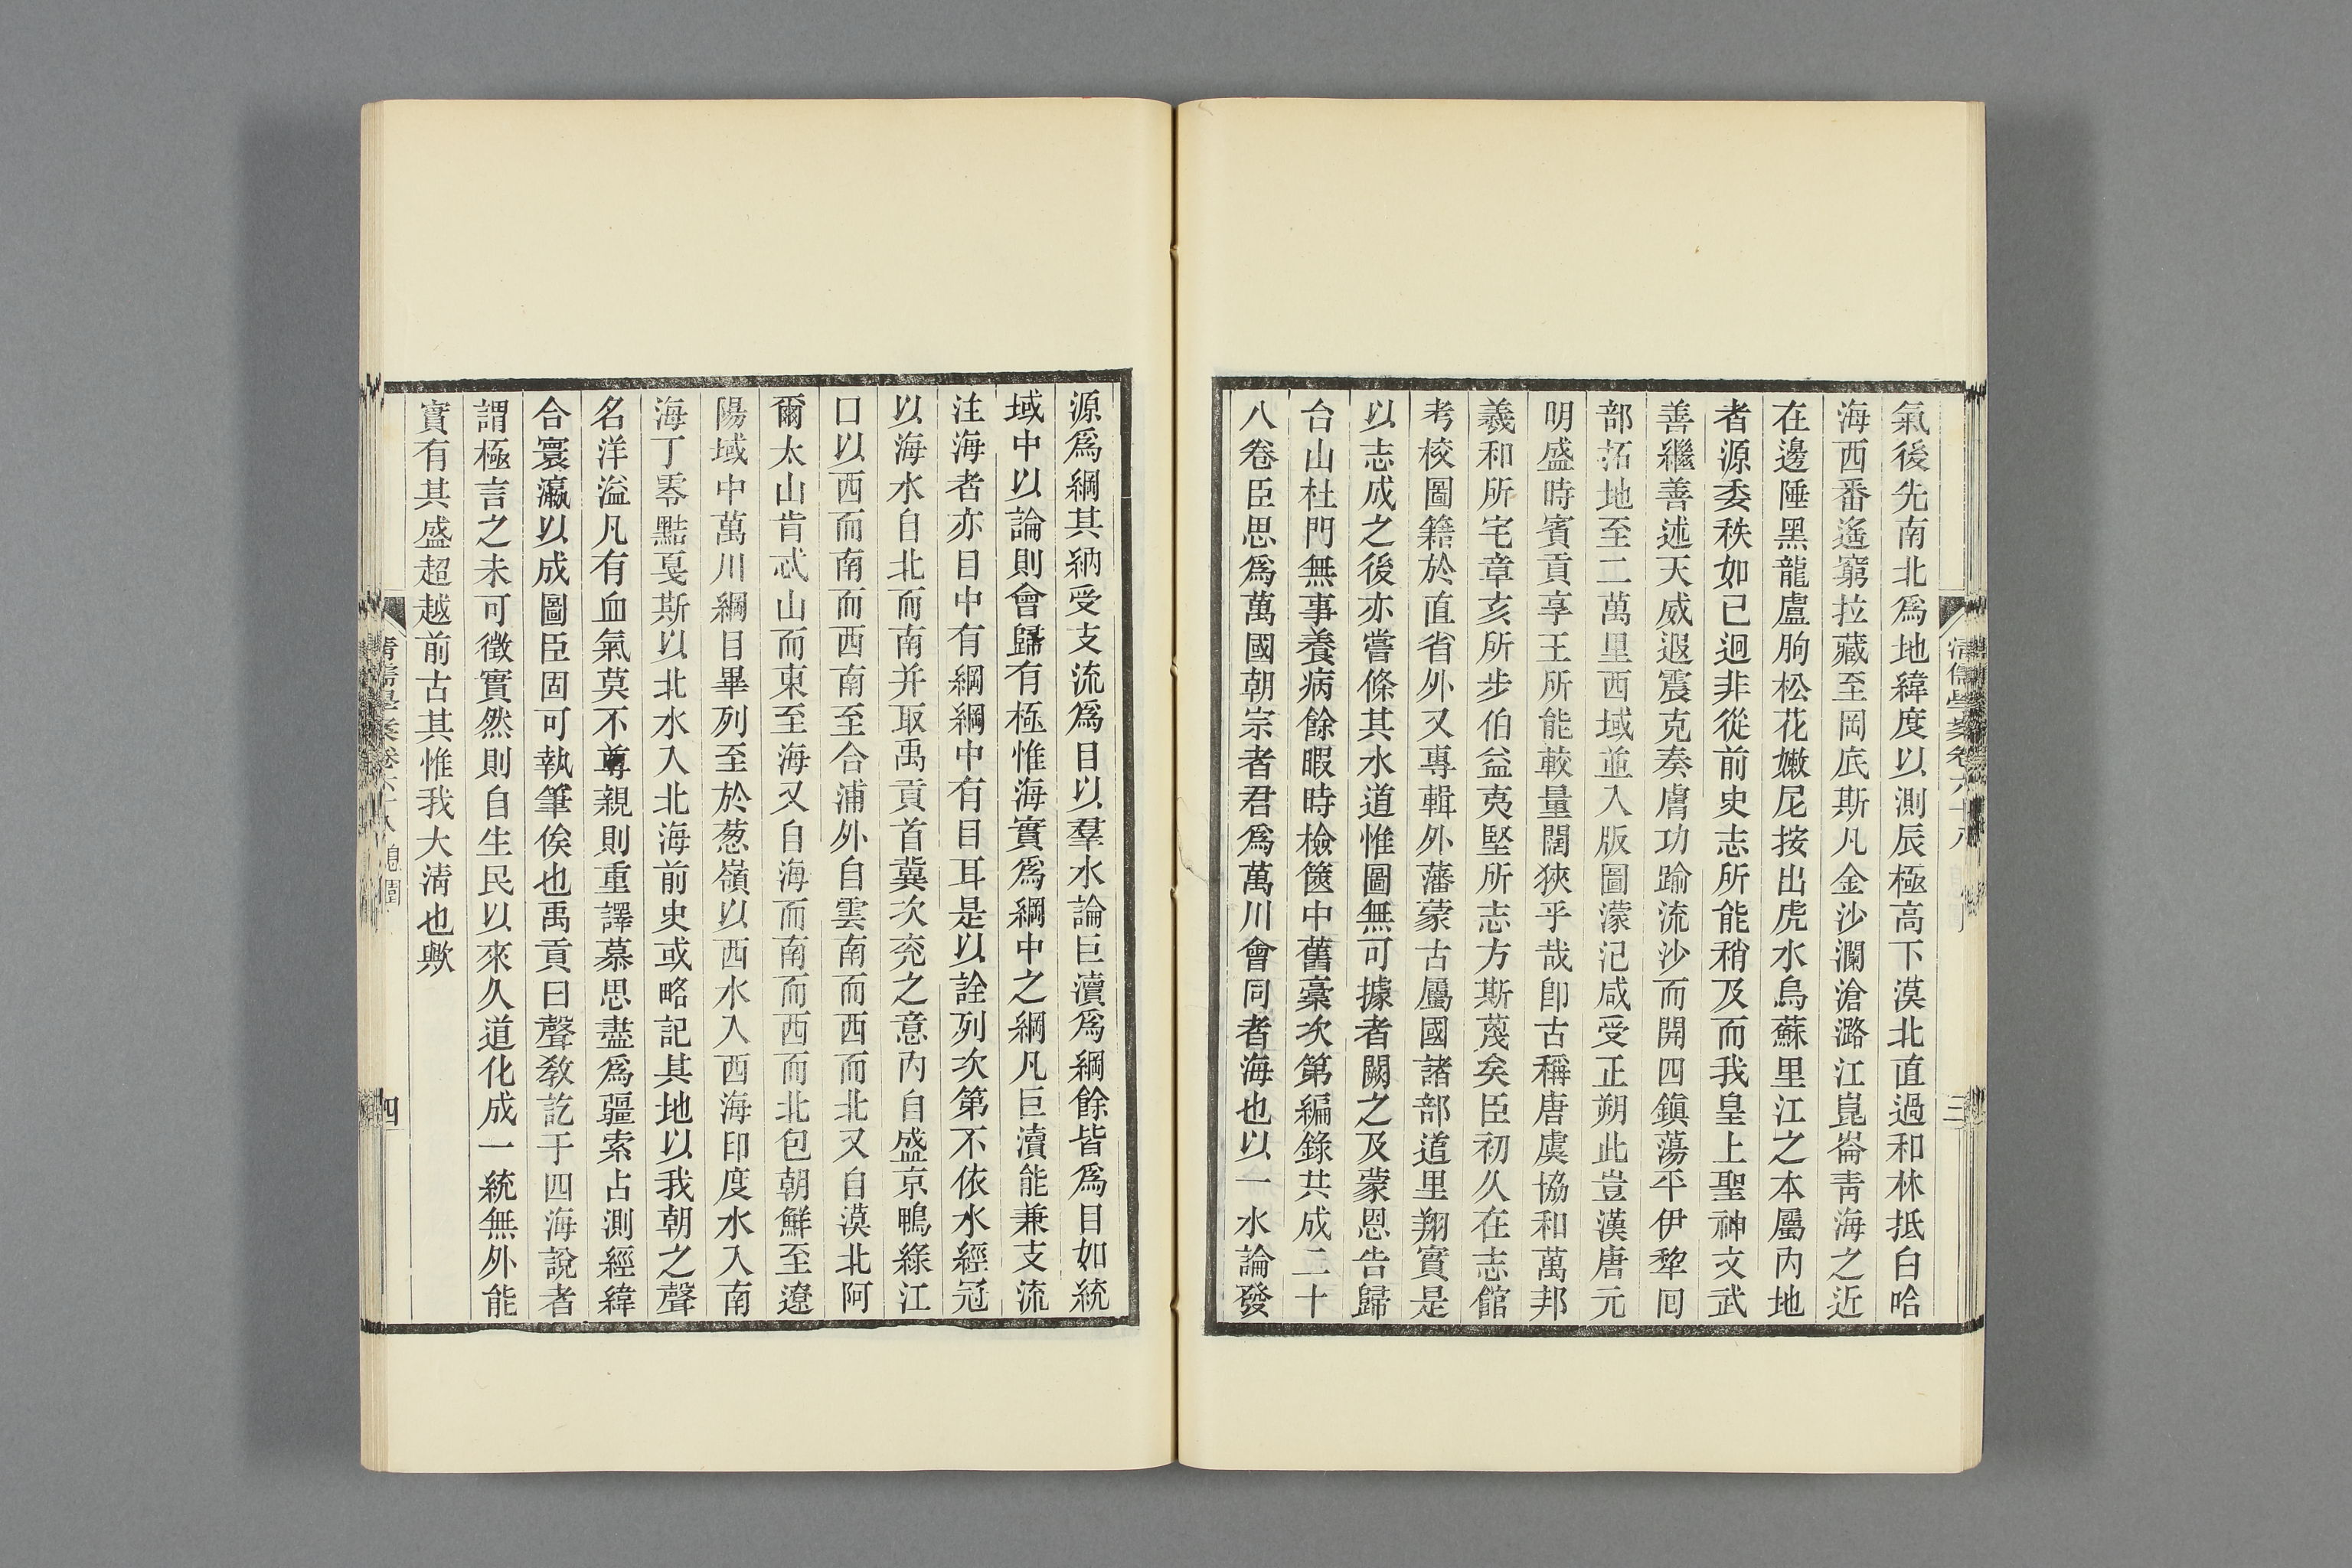 氣後先南北爲地緯度以測辰極高下漠北直過和林抵白哈
海西番遙窮拉藏至岡底斯凡金沙瀾滄潞江崑崙靑海之近
在邊陲黑龍盧朐松花嫩尼按出虎水烏蘇里江之本屬內地
者源委秩如已迥非從前史志所能稍及而我皇上聖神文武
善繼善述天威遐震克奏膚功踰流沙而開四鎮蕩平伊犂囘
部拓地至二萬里西域並入版圖濛汜咸受正朔此豈漢唐元
明盛時賓貢享王所能較量闊狹乎哉卽古稱唐虞協和萬邦
羲和所宅章亥所步伯益夷堅所志方斯蔑矣臣初久在志館
考校圖籍於直省外又專輯外藩蒙古屬國諸部道里翔實是
以志成之後亦嘗條其水道惟圖無可據者闕之及蒙恩告歸
台山杜門無事養病餘暇時檢篋中舊稾次第編錄共成二十
八卷臣思爲萬國朝宗者君爲萬川會同者海也以一水論發
清儒學案卷六十八
三
源爲綱其納受支流爲目以羣水論巨瀆爲綱餘皆爲目如統
域中以論則會歸有極惟海實爲綱中之綱凡巨瀆能兼支流
注海者亦目中有綱綱中有目耳是以詮列次第不依水經冠
以海水自北而南并取禹貢首冀次兗之意內自盛京鴨綠江
口以西而南而西南至合浦外自雲南而西而北又自漠北阿
爾太山肯忒山而東至海又自海而南而西而北包朝鮮至遼
陽域中萬川綱目畢列至於葱嶺以西水入西海印度水入南
海丁零黠戛斯以北水入北海前史或略記其地以我朝之聲
名洋溢凡有血氣莫不尊親則重譯慕思盡爲疆索占測經緯
合寰瀛以成圖臣固可執筆俟也禹貢曰聲敎訖于四海說者
謂極言之未可徵實然則自生民以來久道化成一統無外能
實有其盛超越前古其惟我大淸也歟
清儒學案卷六十八
四